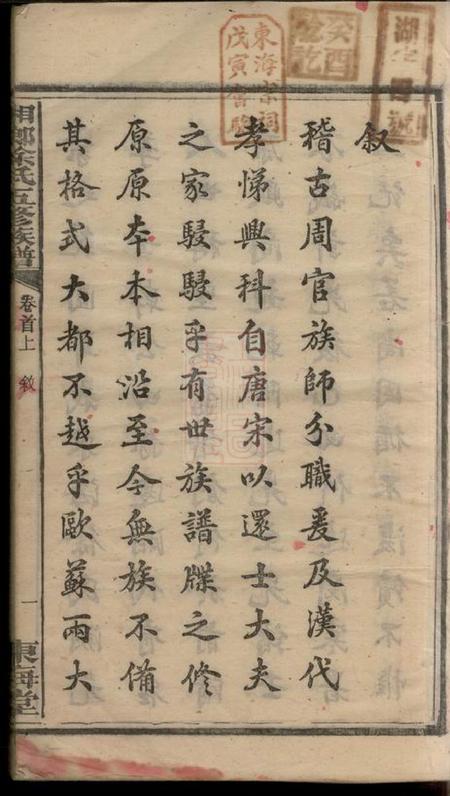 叙
稽古周官族師分職爰及漢代
孝悌興科自唐宋以還士大夫
之家駸駸乎有世族譜牒之修
原原本本相沿至今無族不備
其格式大都不越乎歐蘇兩大
湘鄉徐氏五修族譜
卷首上 敘
一
東海堂
東海宗祠
戊寅
癸酉
訖